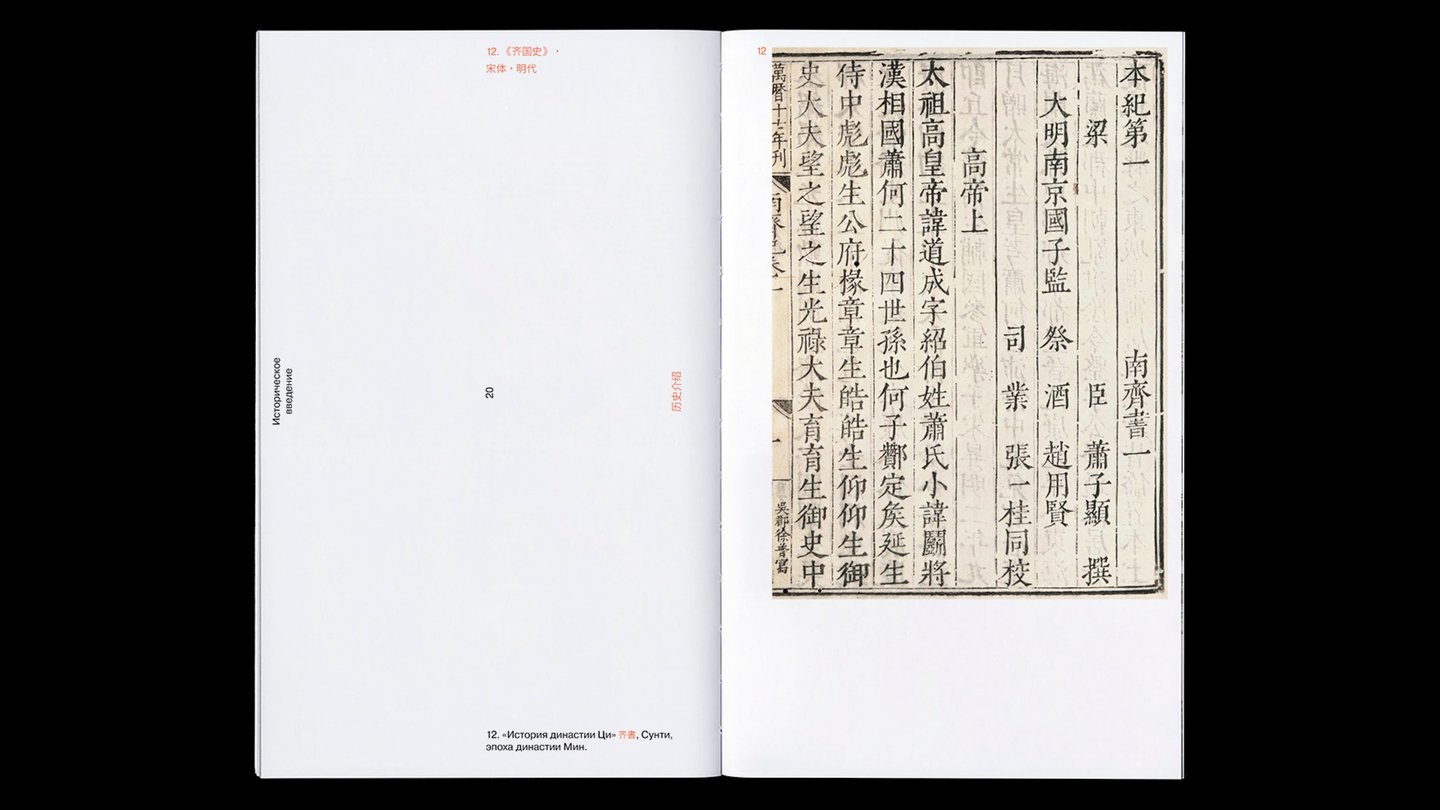 12.《齐国史》，
宋体，明代
Историческое
введение
20
历史介绍
12. «История династии Ци» 齐書, Сунти,
эпоха династии Мин.
12
本紀第一 南齊書一
梁 臣 蕭子顯 撰
大明南京國子監 祭 酒 趙用賢
司 業 張一桂同校
高帝上
太祖高皇帝諱道成字紹伯姓蕭氏小諱鬭將
漢相國蕭何二十四世孫也何子酇定矦延生
侍中彪彪生公府掾章章生皓皓生仰仰生御
史大夫望之望之生光祿大夫育育生御史中
萬曆十七年刊
吳郡徐普寫